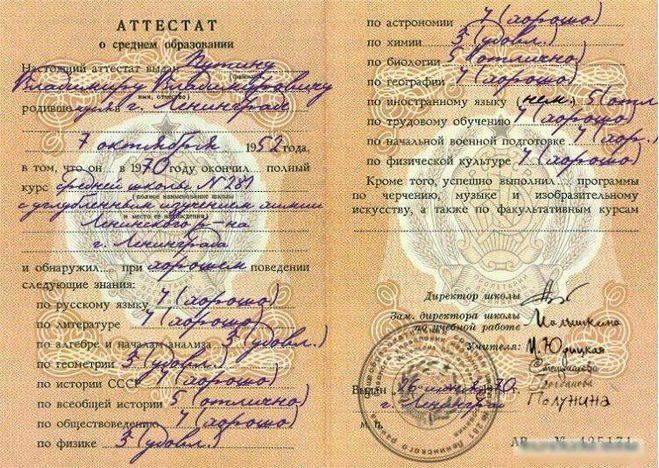 АТТЕСТАТ
о среднем образовании
Настоящий аттестат выдан Путину
Владимиру Владимировичу
имя, отчество)
родившемуся в г. Ленинграде
7 октября 1952 года,
в том, что он в 1970 году окончил полный
курс средней школы № 281
(полное наименование школы
с углублённым изучением химии
и место ее нахождения)
Ленинского р-на
г. Ленинграда
и обнаружил при хорошем поведении
следующие знания:
по русскому языку 4 (хорошо)
по литературе 4 (хорошо)
по алгебре и началам анализа 3 (удовл.)
по геометрии 3 (удовл.)
по истории СССР 4 (хорошо)
по всеобщей истории 5 (отлично)
по обществоведению 4 (хорошо)
по физике 3 (удовл.)
по астрономии 4 (хорошо)
по химии 3 (удовл.)
по биологии 5 (отлично)
по географии 4 (хорошо)
по иностранному языку (нем.) 5 (отл
по трудовому обучению 4 (хорошо)
по начальной военной подготовке 4 (хор.)
по физической культуре 4 (хорошо)
Кроме того, успешно выполнил программы
по черчению, музыке и изобразительному
искусству, а также по факультативным курсам
Директор школы
Зам. директора школы
по учебной работе
Учителя: И. Юрицкая
Богданова
Полунина
Выдан 26 1970 г.
г. Ленинград
М. п.